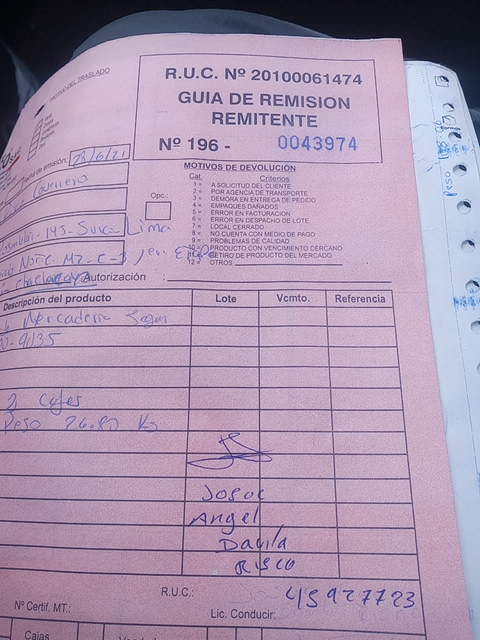 R.U.C. Nº 20100061474
GUIA DE REMISION
REMITENTE
Nº 196 - 0043974
MOTIVO DEL TRASLADO
28/6/21
Guerrero
Opc.:
MOTIVOS DE DEVOLUCIÓN
Cat. Criterios
1 = A SOLICITUD DEL CLIENTE
2 = POR AGENCIA DE TRANSPORTE
3 = DEMORA EN ENTREGA DE PEDIDO
4 = EMPAQUES DAÑADOS
5 = ERROR EN FACTURACION
6 = ERROR EN DESPACHO DE LOTE
7 = LOCAL CERRADO
8 = NO CUENTA CON MEDIO DE PAGO
9 = PROBLEMAS DE CALIDAD
PRODUCTO CON VENCIMIENTO CERCANO
RETIRO DE PRODUCTO DEL MERCADO
12 = OTROS
145 - Surco - Lima
Autorización :
Descripción del producto Lote Vcmto. Referencia
Mercaderia Segun
9135
2 Cajas
Peso 26.80 Kg
Josue
Angel
Davila
Risco
R.U.C.: 45927723
Nº Certif. MT.: Lic. Conducir:
Cajas